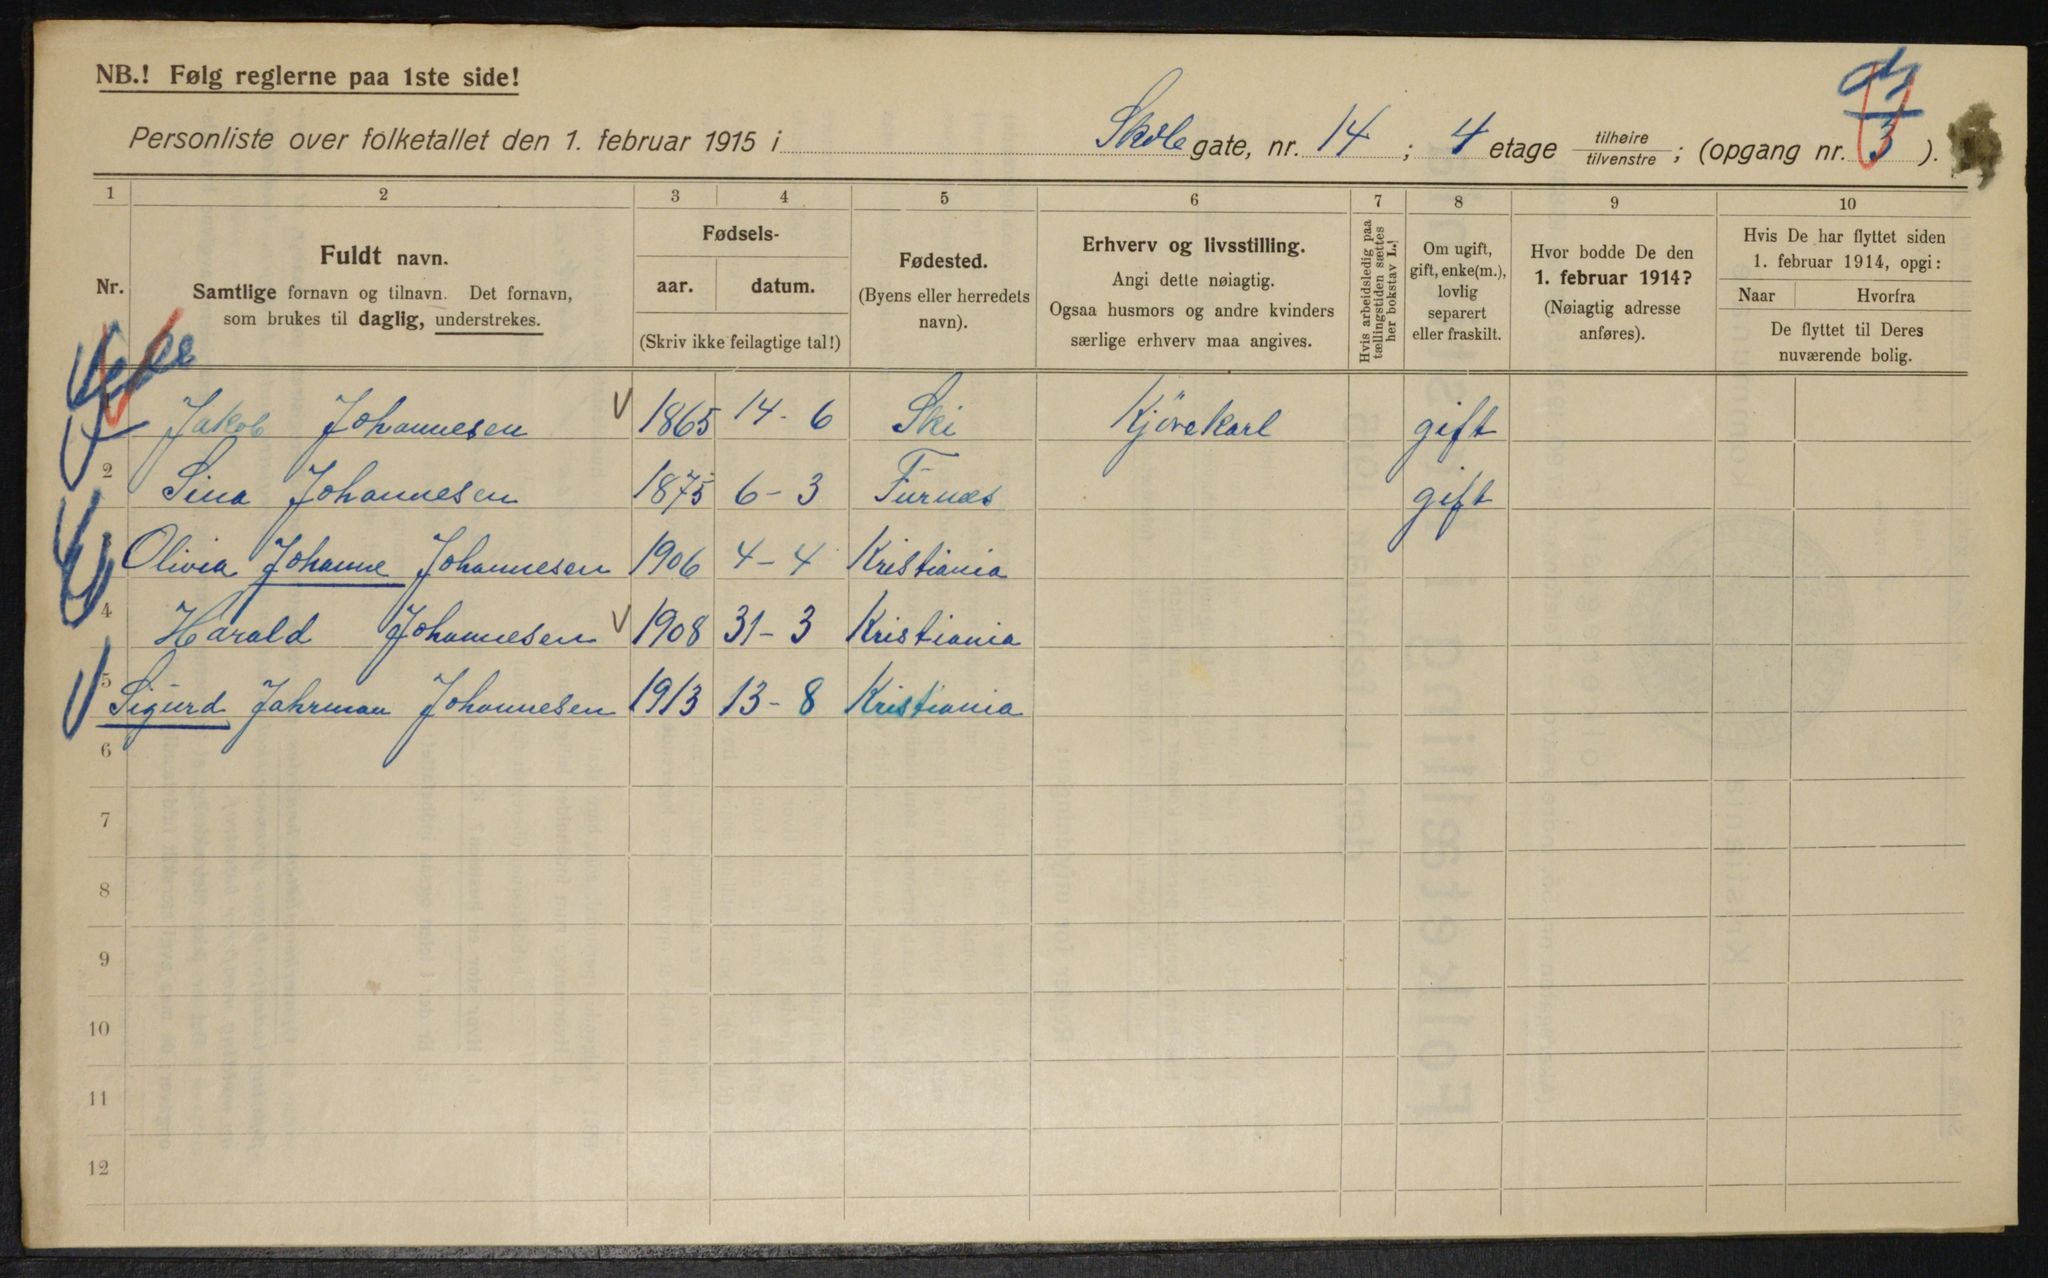 NB.! Følg reglerne paa 1ste side!
Personliste over folketallet den 1. februar 1915 i Skole gate, nr. 14 ; 4 etage tilhøire/tilvenstre ; (opgang nr. 3 ).
1 2 3 4 5 6 7 8 9 10
Nr.
Fuldt navn.
Samtlige fornavn og tilnavn. Det fornavn,
som brukes til daglig, understrekes.
Fødsels-
aar. datum.
(Skriv ikke feilagtige tal!)
Fødested.
(Byens eller herredets
navn).
Erhverv og livsstilling.
Angi dette nøiagtig.
Ogsaa husmors og andre kvinders
særlige erhverv maa angives.
Hvis arbeidsledig paa
tællingstiden sættes
her bokstav L.!
Om ugift,
gift, enke(m.),
lovlig
separert
eller fraskilt.
Hvor bodde De den
1. februar 1914?
(Nøiagtig adresse
anføres).
Hvis De har flyttet siden
1. februar 1914, opgi:
Naar Hvorfra
De flyttet til Deres
nuværende bolig.
Jakob Johannesen 1865 14-6 Ski Kjörekarl gift
2 Sina Johannesen 1875 6-3 Furnæs gift
Olivia Johanne Johannesen 1906 4-4 Kristiania
4 Harald Johannesen 1908 31-3 Kristiania
5 Sigurd Jahrman Johannesen 1913 13-8 Kristiania
6
7
8
9
10
11
12